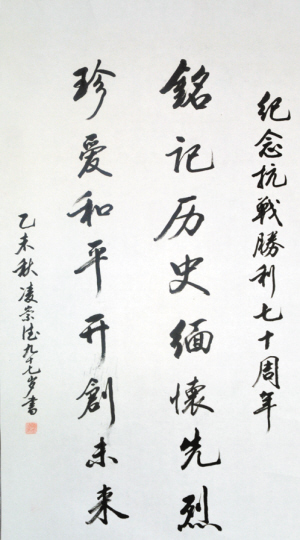 纪念抗戰勝利七十周年
銘记历史缅懷先烈
珍爱和平开創未来
乙未秋凌崇德九十七岁書